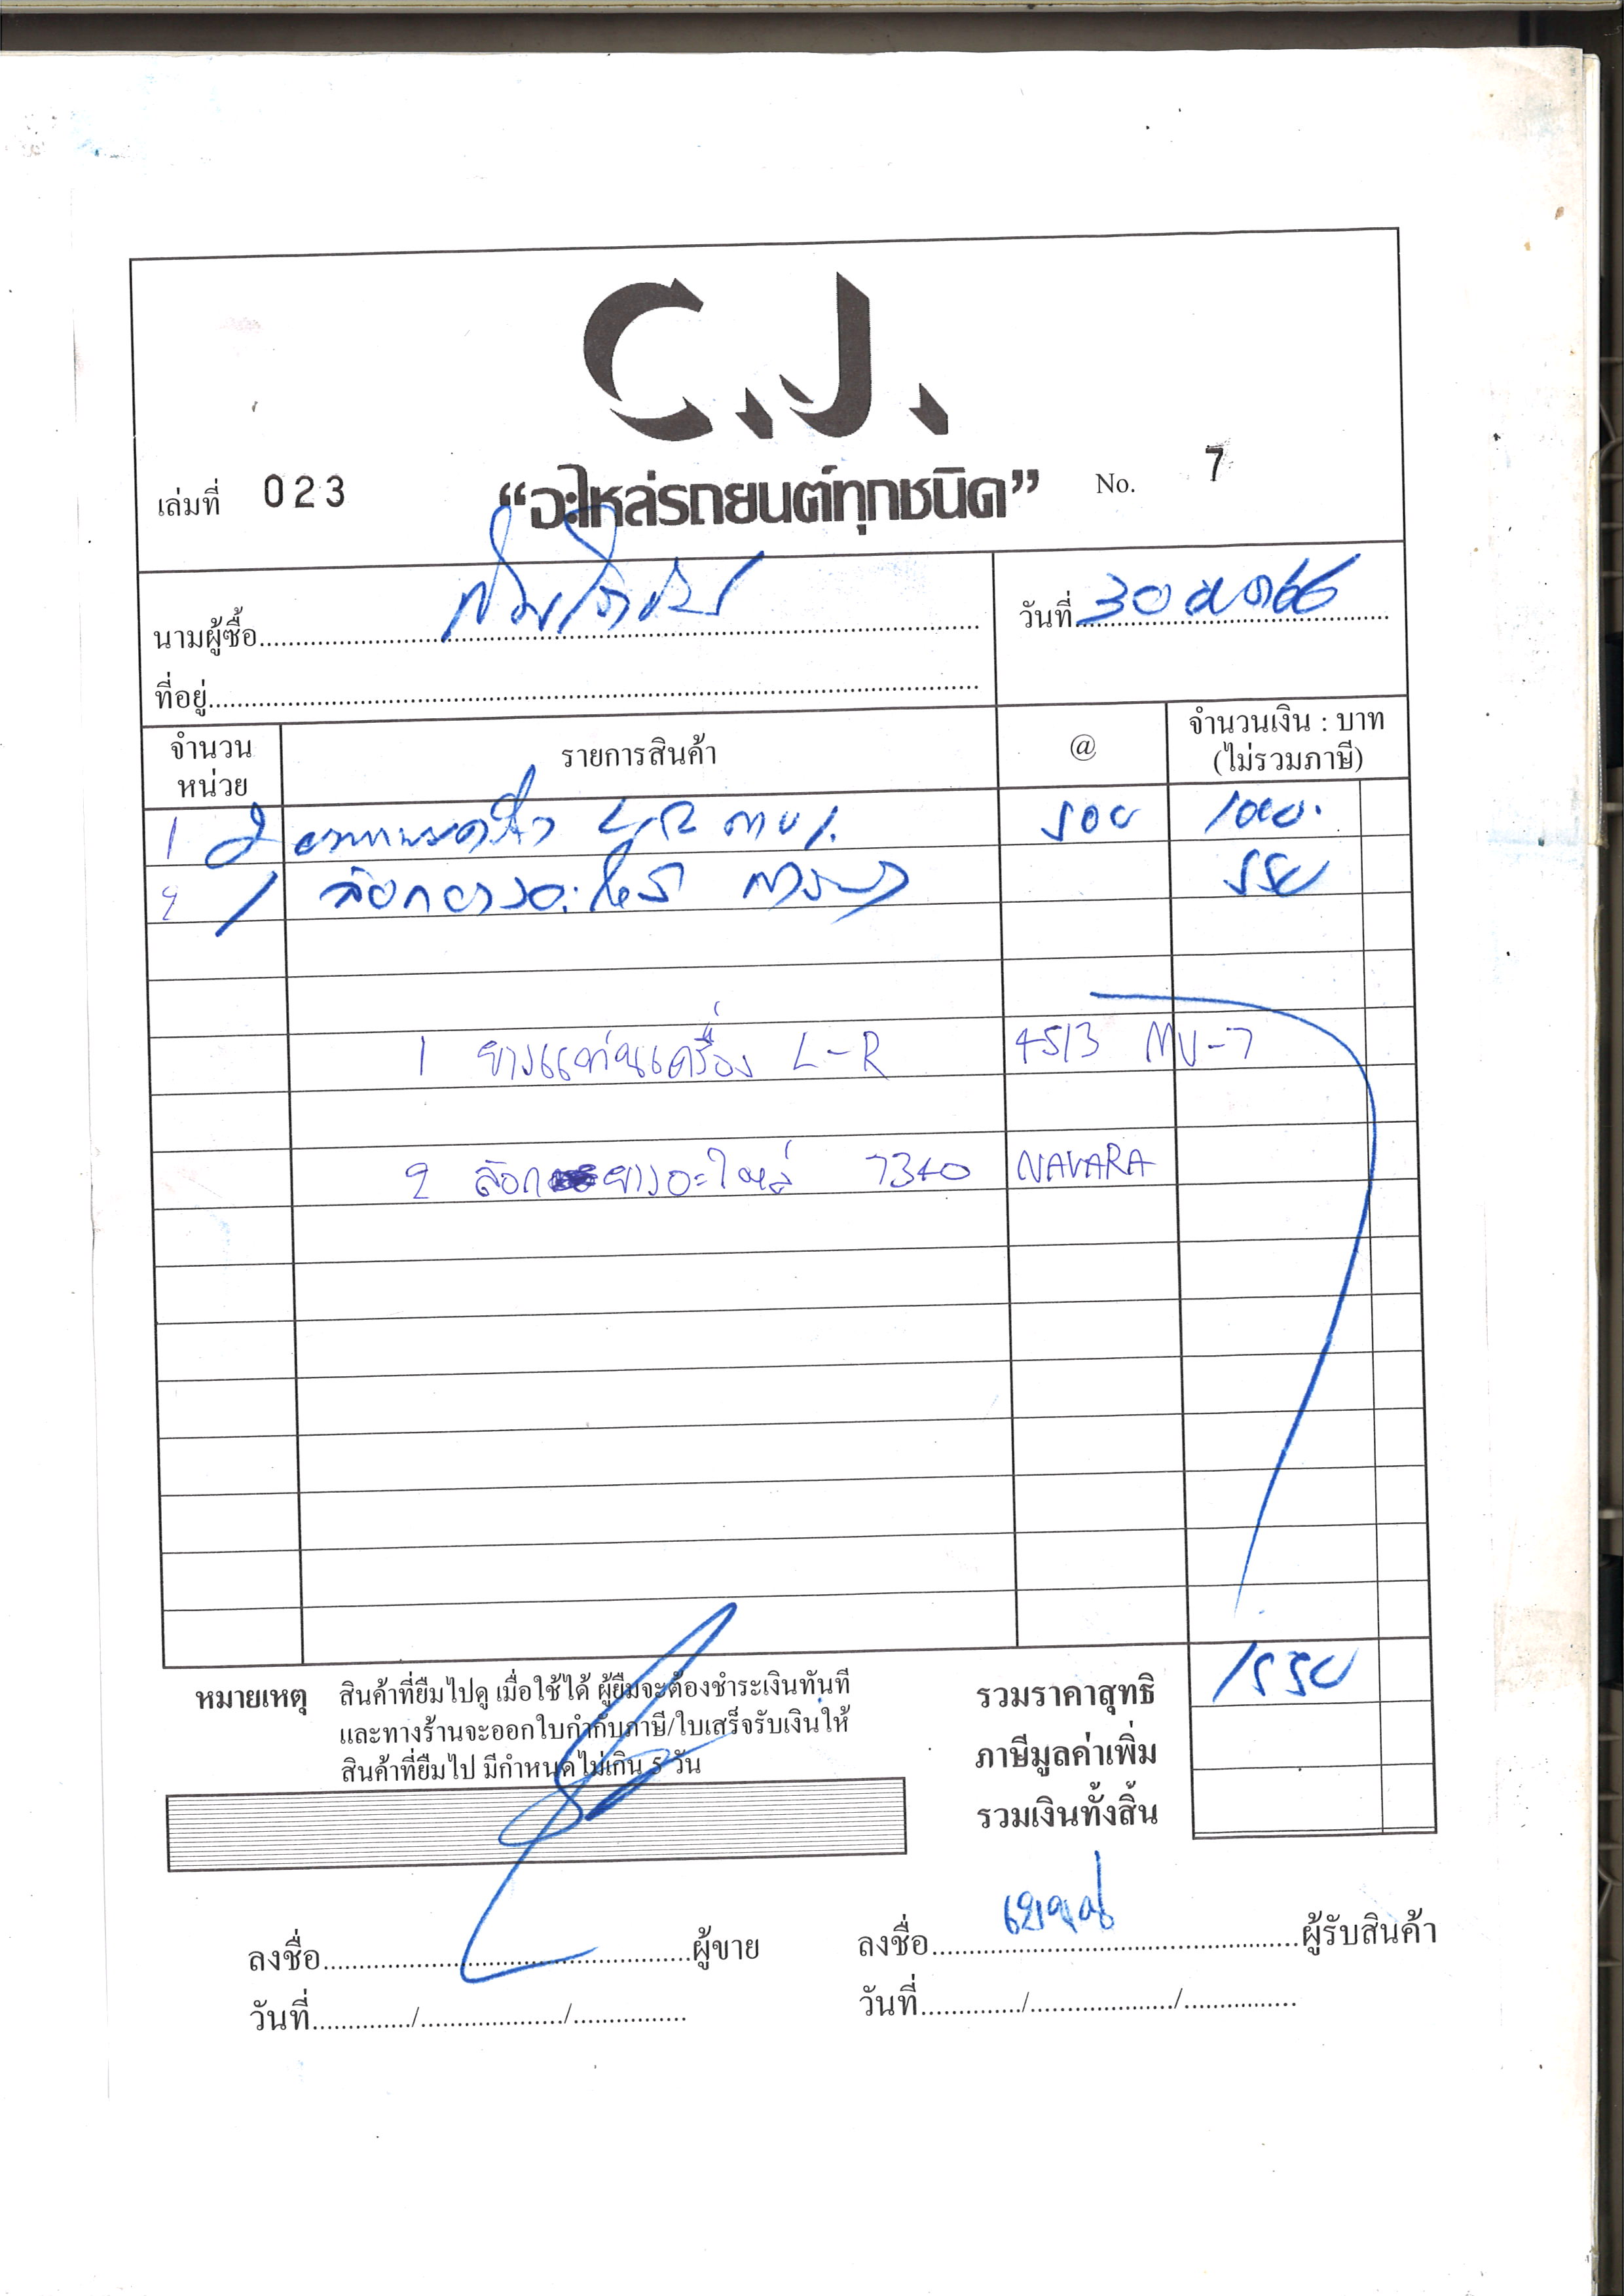 C.J.
เล่มที่ 023 “อะไหล่รถยนต์ทุกชนิด” No. 7
นามผู้ซื้อ
วันที่ 30 66
ที่อยู่
จำนวนหน่วย รายการสินค้า @ จำนวนเงิน : บาท (ไม่รวมภาษี)
1 2 L-R 500 1000.
2 1 ล้อกยางอะไหล่ 550
1 ยางแท่นเครื่อง L-R 4513 MU-7
2 ล้อก ยางอะไหล่ 7340 NAVARA
หมายเหตุ สินค้าที่ยืมไปดู เมื่อใช้ได้ ผู้ยืมจะต้องชำระเงินทันที
และทางร้านจะออกใบกำกับภาษี/ใบเสร็จรับเงินให้
สินค้าที่ยืมไป มีกำหนดไม่เกิน 5 วัน
รวมราคาสุทธิ 1550
ภาษีมูลค่าเพิ่ม
รวมเงินทั้งสิ้น
ลงชื่อ ผู้ขาย ลงชื่อ ผู้รับสินค้า
วันที่ / / วันที่ / /